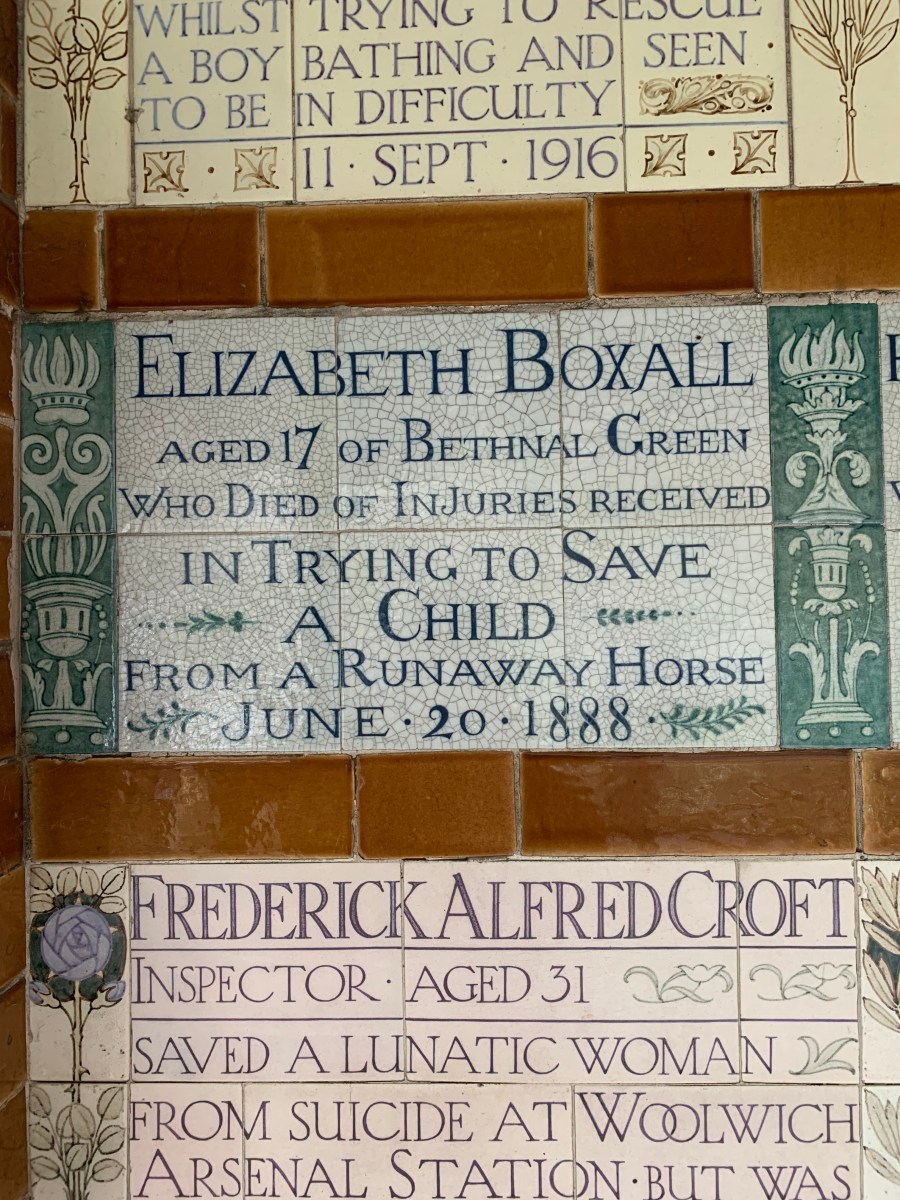 WHILST TRYING TO RESCUE
A BOY BATHING AND SEEN ·
TO BE IN DIFFICULTY
11 · SEPT · 1916
ELIZABETH BOXALL
AGED 17 OF BETHNAL GREEN
WHO DIED OF INJURIES RECEIVED
IN TRYING TO SAVE
A CHILD
FROM A RUNAWAY HORSE
JUNE · 20 · 1888 ·
FREDERICK ALFRED CROFT
INSPECTOR · AGED 31
SAVED A LUNATIC WOMAN
FROM SUICIDE AT WOOLWICH
ARSENAL STATION · BUT WAS